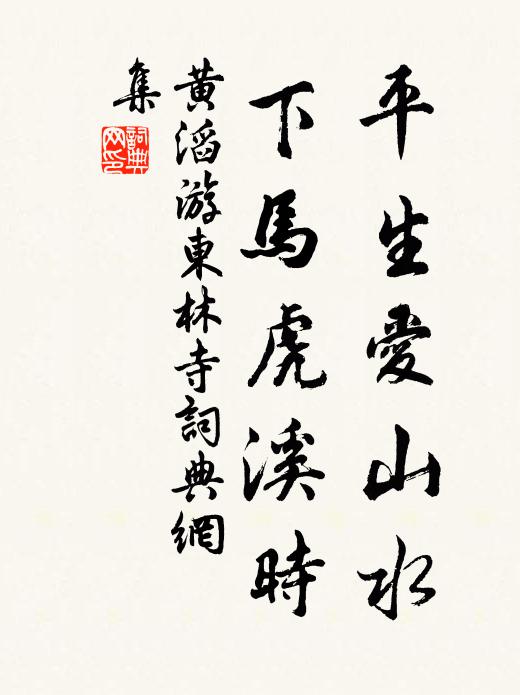 平生愛山水
下馬虎溪時
黃滔游東林寺詞典網
集
詞典
网印